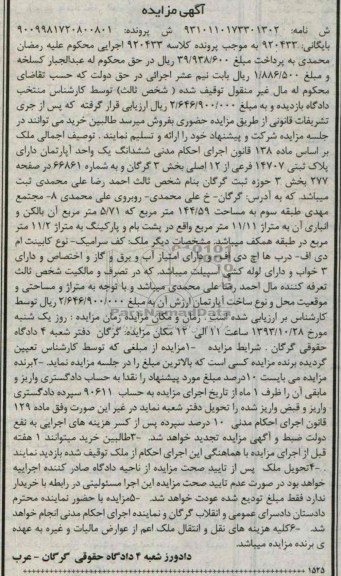 آگهی مزایده
ش نامه: ۹۳۱۰۱۱۰۱۷۳۳۰۱۳۰۲ ش پرونده: ۹۰۰۹۹۸۱۷۲۰۸۰۰۸۰۱
بایگانی: ۹۲۰۴۳۳ به موجب پرونده کلاسه ۹۲۰۴۳۳ اجرایی محکوم علیه رمضان
محمدی به پرداخت مبلغ ۳۹/۹۳۸/۶۰۰ ریال در حق محکوم له عبدالجبار کسلخه
و مبلغ ۱/۸۸۶/۵۰۰ ریال بابت نیم عشر اجرائی در حق دولت که حسب تقاضای
محکوم له مال غیر منقول توقیف شده ( شخص ثالث) توسط کارشناس منتخب
دادگاه بازدیده و به مبلغ ۲/۶۴۶/۹۰۰/۰۰۰ ریال ارزیابی قرار گرفته که پس از جری
تشریفات قانونی از طریق مزایده حضوری بفروش میرسد طالبین خرید می توانند در
جلسه مزایده شرکت و پیشنهاد خود را ارائه و تسلیم نمایند . توصیف اجمالی ملک
بر اساس ماده ۱۳۸ قانون اجرای احکام مدنی ششدانگ یک واحد آپارتمان دارای
پلاک ثبتی ۱۴۷۰۷ فرعی از ۱۲ اصلی بخش ۳ گرگان و به شماره ۶۶۸۶۱ در صفحه
۲۷۷ بخش ۳ حوزه ثبت گرگان بنام شخص ثالث احمد رضا علی محمدی ثبت
میباشد. که به آدرس: گرگان- خ علی محمدی- روبروی علی محمدی ۸- مجتمع
مهدی طبقه سوم به مساحت ۱۴۴/۵۹ متر مربع که ۵/۷۱ متر مربع آن بالکن و
انباری آن به متراژ ۱۱/۱۱ متر مربع واقع در پشت بام و پارکینگ به متراژ ۱۱/۲ متر
مربع در طبقه همکف میباشد. مشخصات دیگر ملک: کف سرامیک- نوع کابینت ام
دی اف- درب ها اچ دی اف- دارای امتیاز آب و برق و گاز و اختصاص و دارای
۳ خواب و دارای لوله کشی اسپیلت میباشد. که در تصرف و مالکیت شخص ثالث
تعرفه کننده مال احمد رضا علی محمدی میباشد و با توجه به متراژ و مساحتی و
موقعیت محل و نوع ساخت آپارتمان ارزش آن به مبلغ ۲/۶۴۶/۹۰۰/۰۰۰ ریال توسط
کارشناس بر ارزیابی شده است. زمان و مکان مزایده: زمان مزایده : روز یک شنبه
مورخ ۱۳۹۳/۱۰/۲۸ ساعت ۱۱ الی ۱۲ مکان مزایده: گرگان دفتر شعبه ۴ دادگاه
حقوقی گرگان . شرایط مزایده ۱-مزایده از مبلغی که توسط کارشناس تعیین
گردیده برنده مزایده کسی است که بالاترین مبلغ را در جلسه مزایده نماید. ۲-برنده
مزایده می بایست ۱۰درصد مبلغ مورد پیشنهاد را نقدا به حساب دادگستری واریز و
مابقی آن را ظرف ۱ ماه از تاریخ اجرای مزایده به حساب ۹۰۶۱۱ سپرده دادگستری
واریز و قبض واریز شده را تحویل دفتر شعبه نماید در غیر این صورت وفق ماده ۱۲۹
قانون اجرای احکام مدنی ۱۰ درصد سپرده پس از کسر هزینه های اجرایی به نفع
دولت ضبط و آگهی مزایده تجدید خواهد شد. ۳-طالبین خرید میتوانند ۱ هفته
قبل از اجرای مزایده با هماهنگی این اجرای احکام از ملک توقیف شده بازدید نمایند
. ۴-تحویل ملک پس از تایید صحت مزایده از ناحیه دادگاه صادر کننده اجراییه
خواهد بود در صورت عدم تایید صحت مزایده این اجرا مسئولیتی در رابطه با خریدار
ندارد فقط مبلغ تودیع شده عودت خواهد شد. ۵-مزایده با حضور نماینده محترم
دادستان دادسرای عمومی و انقلاب گرگان و نماینده اجرای احکام مدنی انجام خواهد
شد. ۶-کلیه هزینه های نقل و انتقال ملک اعم از عوارض مالیات و غیره به عهده
ی برنده مزایده میباشد.
دادورز شعبه ۴ دادگاه حقوقی گرگان - عرب
۱۵۲۵